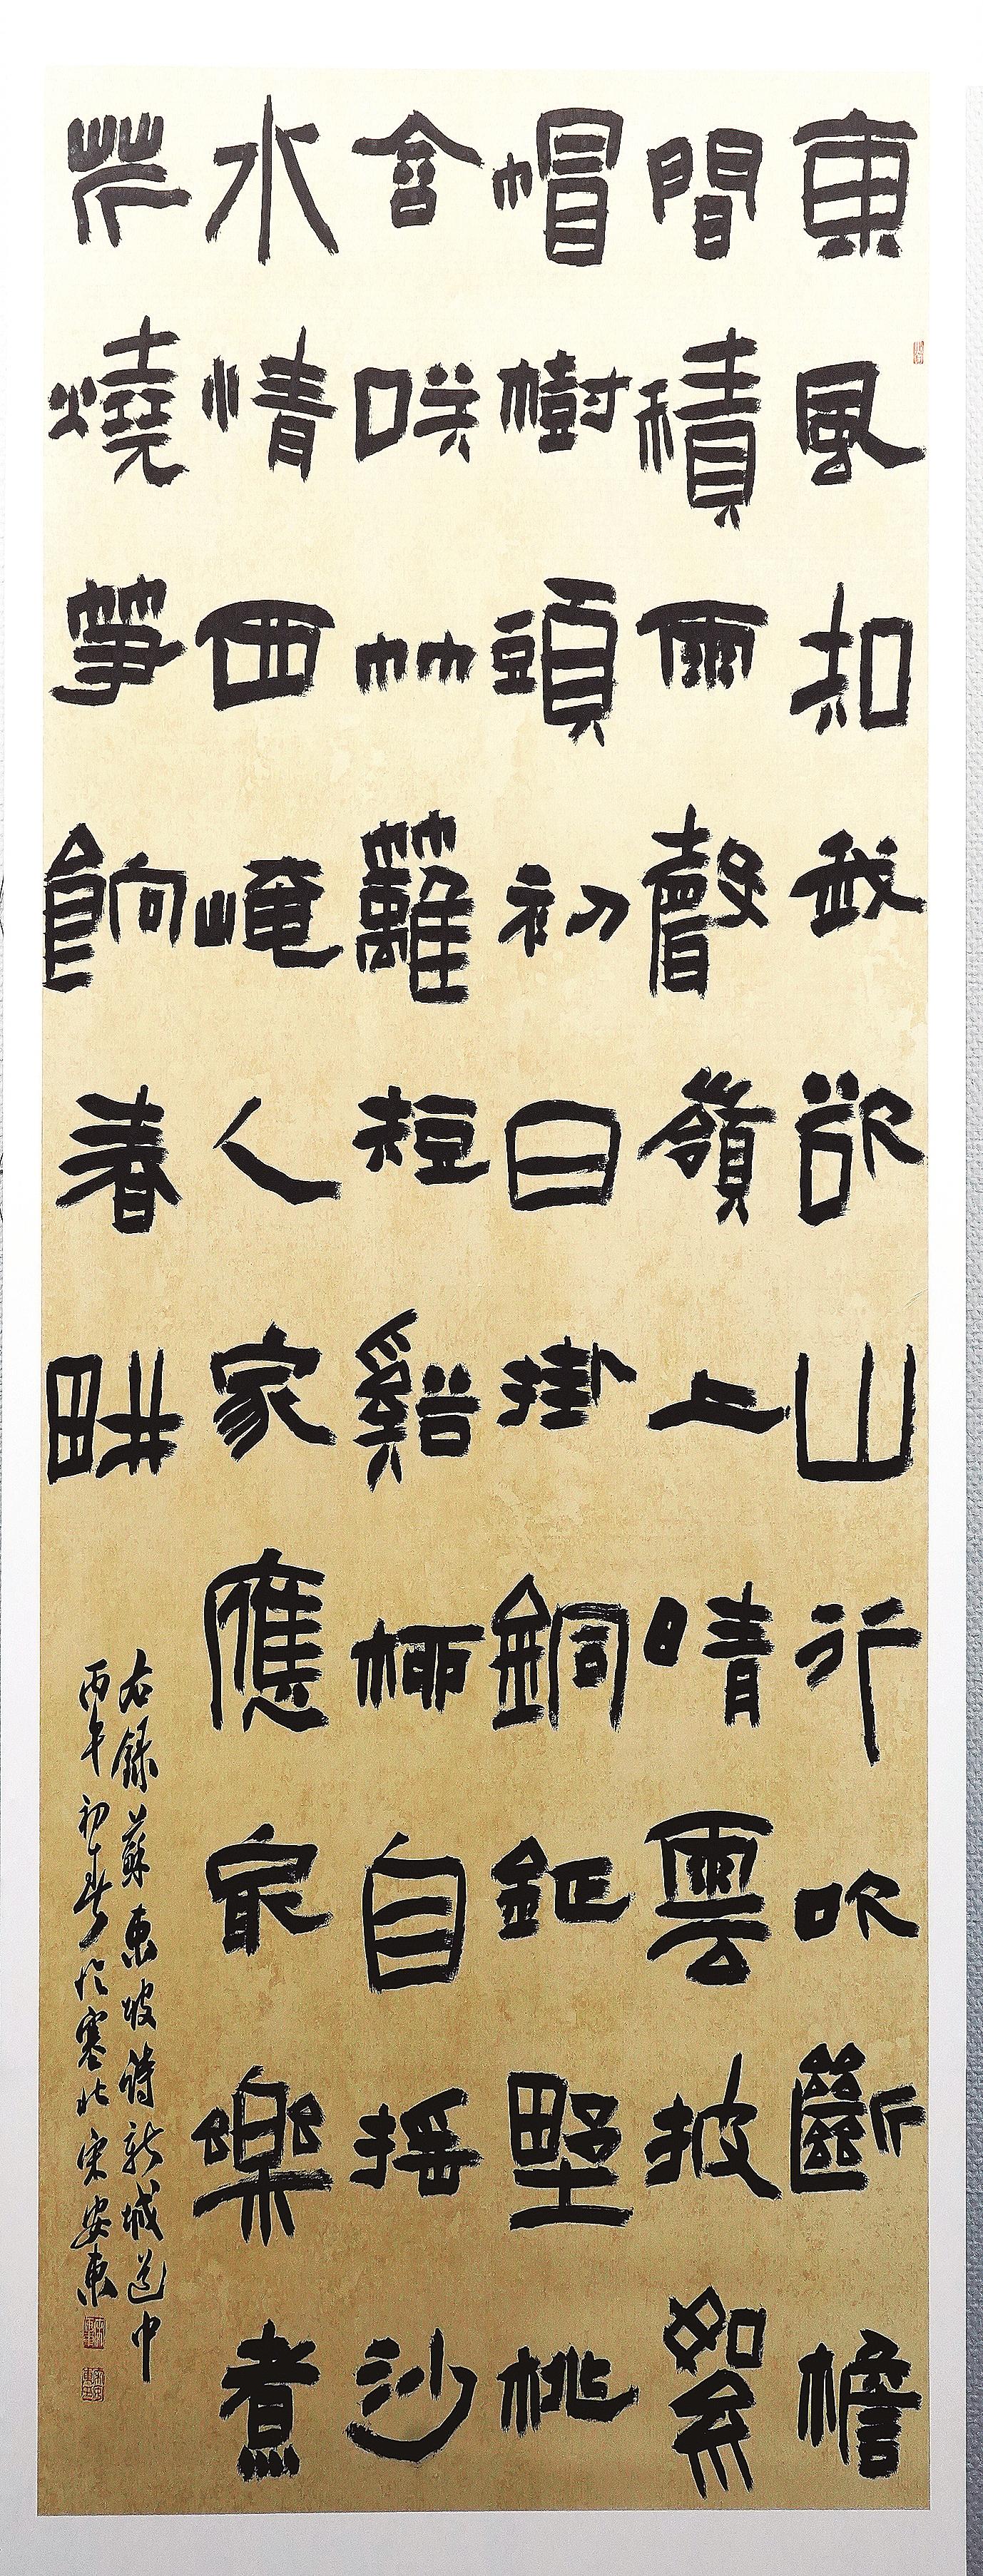 東風知我欲山行吹斷檐
間積雨聲嶺上晴雲披絮
帽樹頭初日掛銅鉦野桃
含咲竹籬短谿柳自搖沙
水清西崦人家應最樂煮
芹燒笋餉春畊
右錄蘇東坡詩新城道中
丙午初春於塞北宋安東